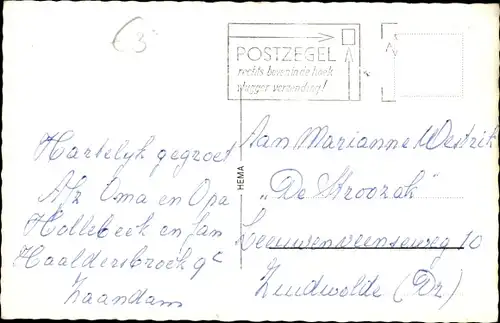 €3
POSTZEGEL
rechts boven in de hoek
vlugger verzending!
Hartelyk gegroet
Afz Oma en Opa
Hollebeek en Jan
Haaldersbroek 9c
Zaandam
HEMA
Aan Marianne Westrik
"De Stroozak"
Leeuwenveenseweg 10
Zuidwolde (Dr)